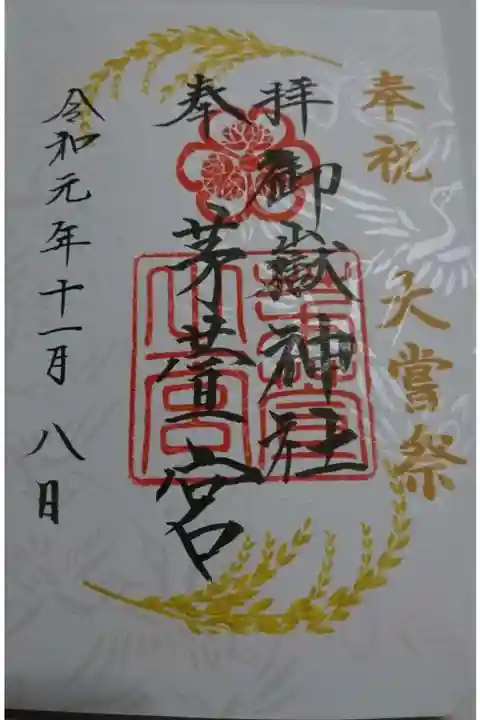 奉祝 大嘗祭
拝 御嶽神社
奉 茅萱宮
令和元年十一月八日